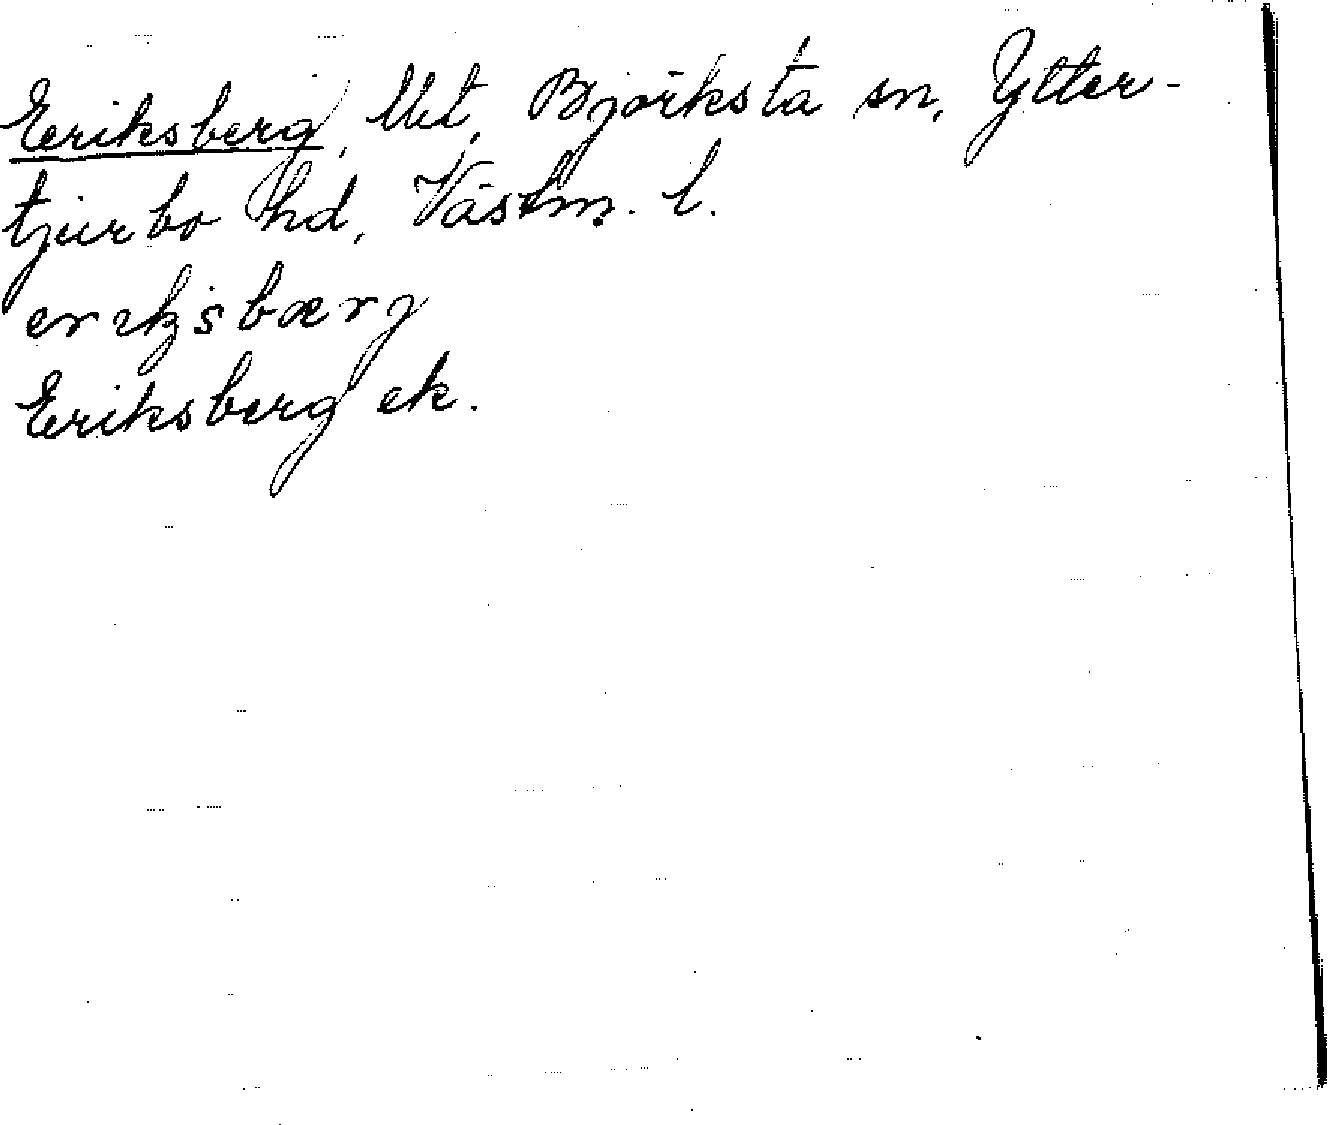 Eriksberg, Uet, Björksta sn, Ytter-
tjurbo hd, Västm. l.
erıksbærg
Eriksberg ek.